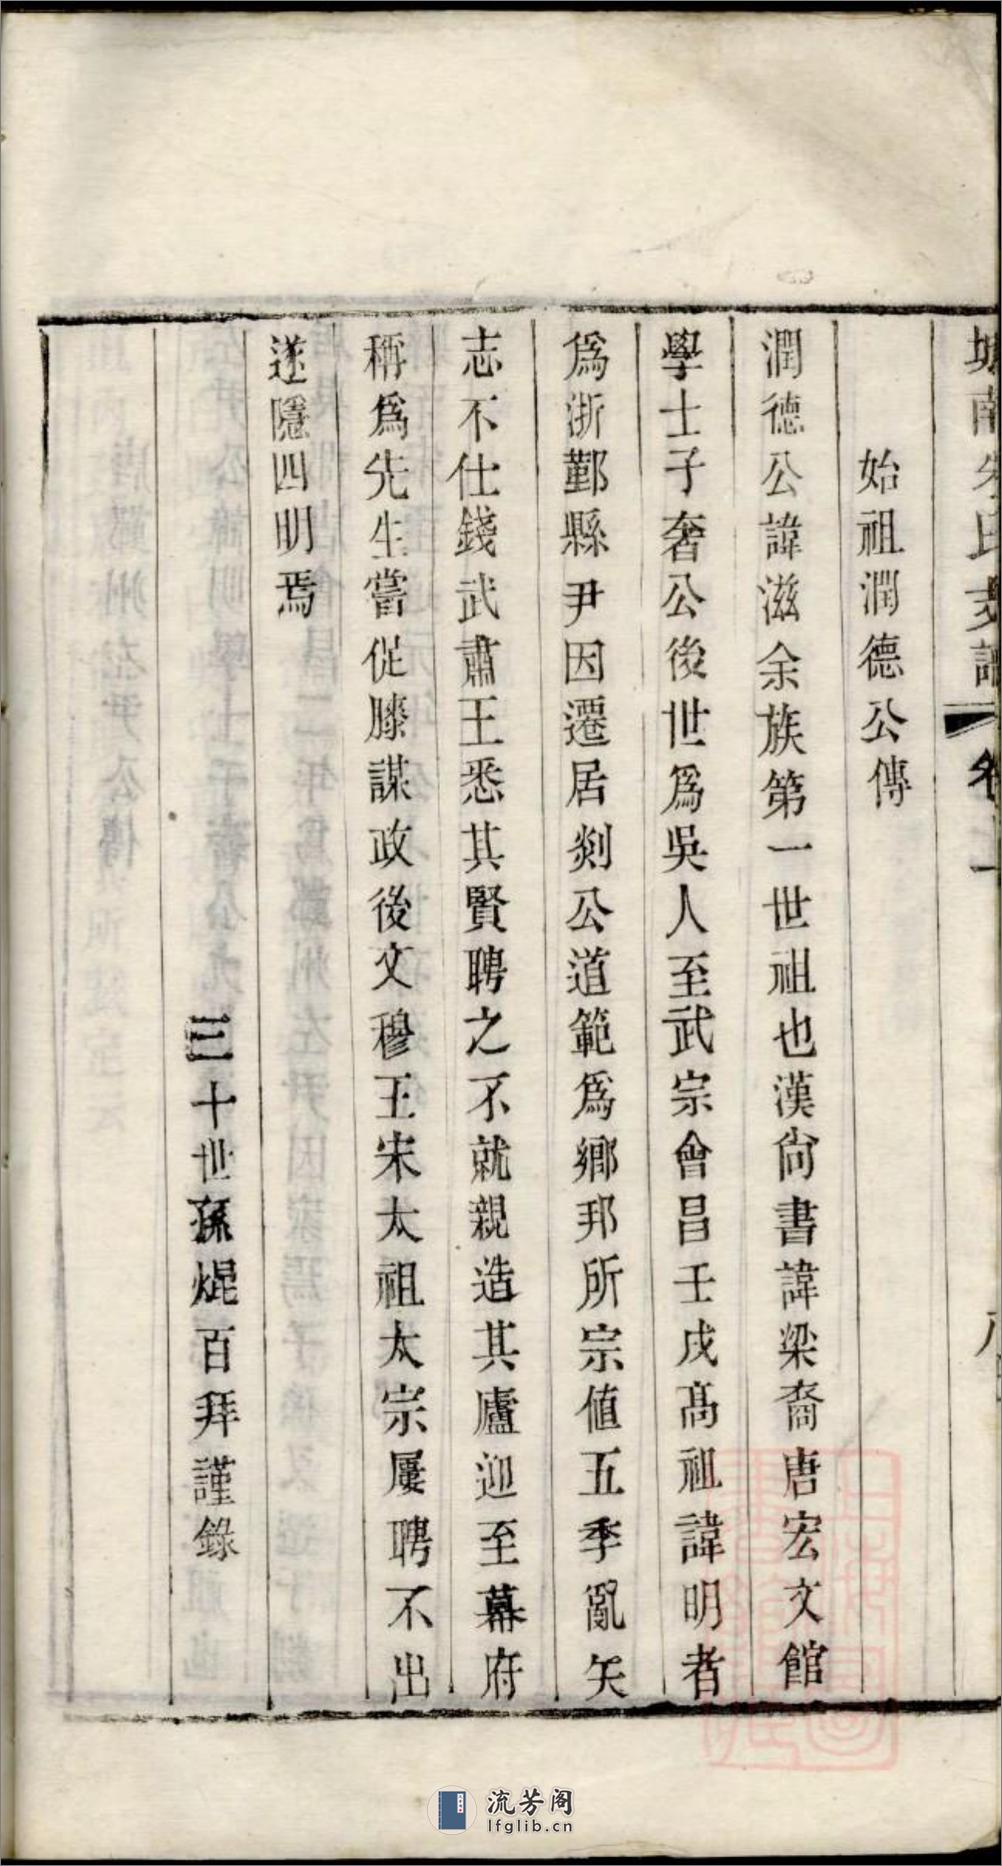 始祖潤德公傳
潤德公諱滋余族第一世祖也漢尙書諱梁裔唐宏文館
學士子奢公後世爲吳人至武宗會昌壬戌高祖諱明者
爲浙鄞縣尹因遷居剡公道範爲鄉邦所宗值五季亂矢
志不仕錢武肅王悉其賢聘之不就親造其廬迎至幕府
稱爲先生嘗促膝謀政後文穆王宋太祖太宗屢聘不出
遂隱四明焉
三十世孫焜百拜謹錄
流芳阁
lfglib.cn